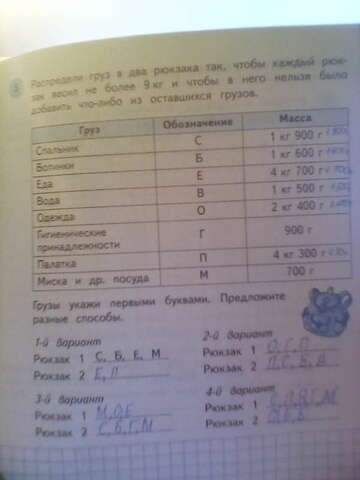 5 Распредели груз в два рюкзака так, чтобы каждый рюк-
зак весил не более 9 кг и чтобы в него нельзя было
добавить что-либо из оставшихся грузов.
Груз Обозначение Масса
Спальник С 1 кг 900 г
Ботинки Б 1 кг 600 г
Еда Е 4 кг 700 г
Вода В 1 кг 500 г
Одежда О 2 кг 400 г
Гигиенические
принадлежности Г 900 г
Палатка П 4 кг 300 г
Миска и др. посуда М 700 г
Грузы укажи первыми буквами. Предложите
разные способы.
1-й вариант
Рюкзак 1 С, Б, Е, М
Рюкзак 2 Е, П
2-й вариант
Рюкзак 1 О, Г, П
Рюкзак 2
3-й вариант
Рюкзак 1 М, О, Е
Рюкзак 2 С, Б, Г, М
4-й вариант
Рюкзак 1
Рюкзак 2